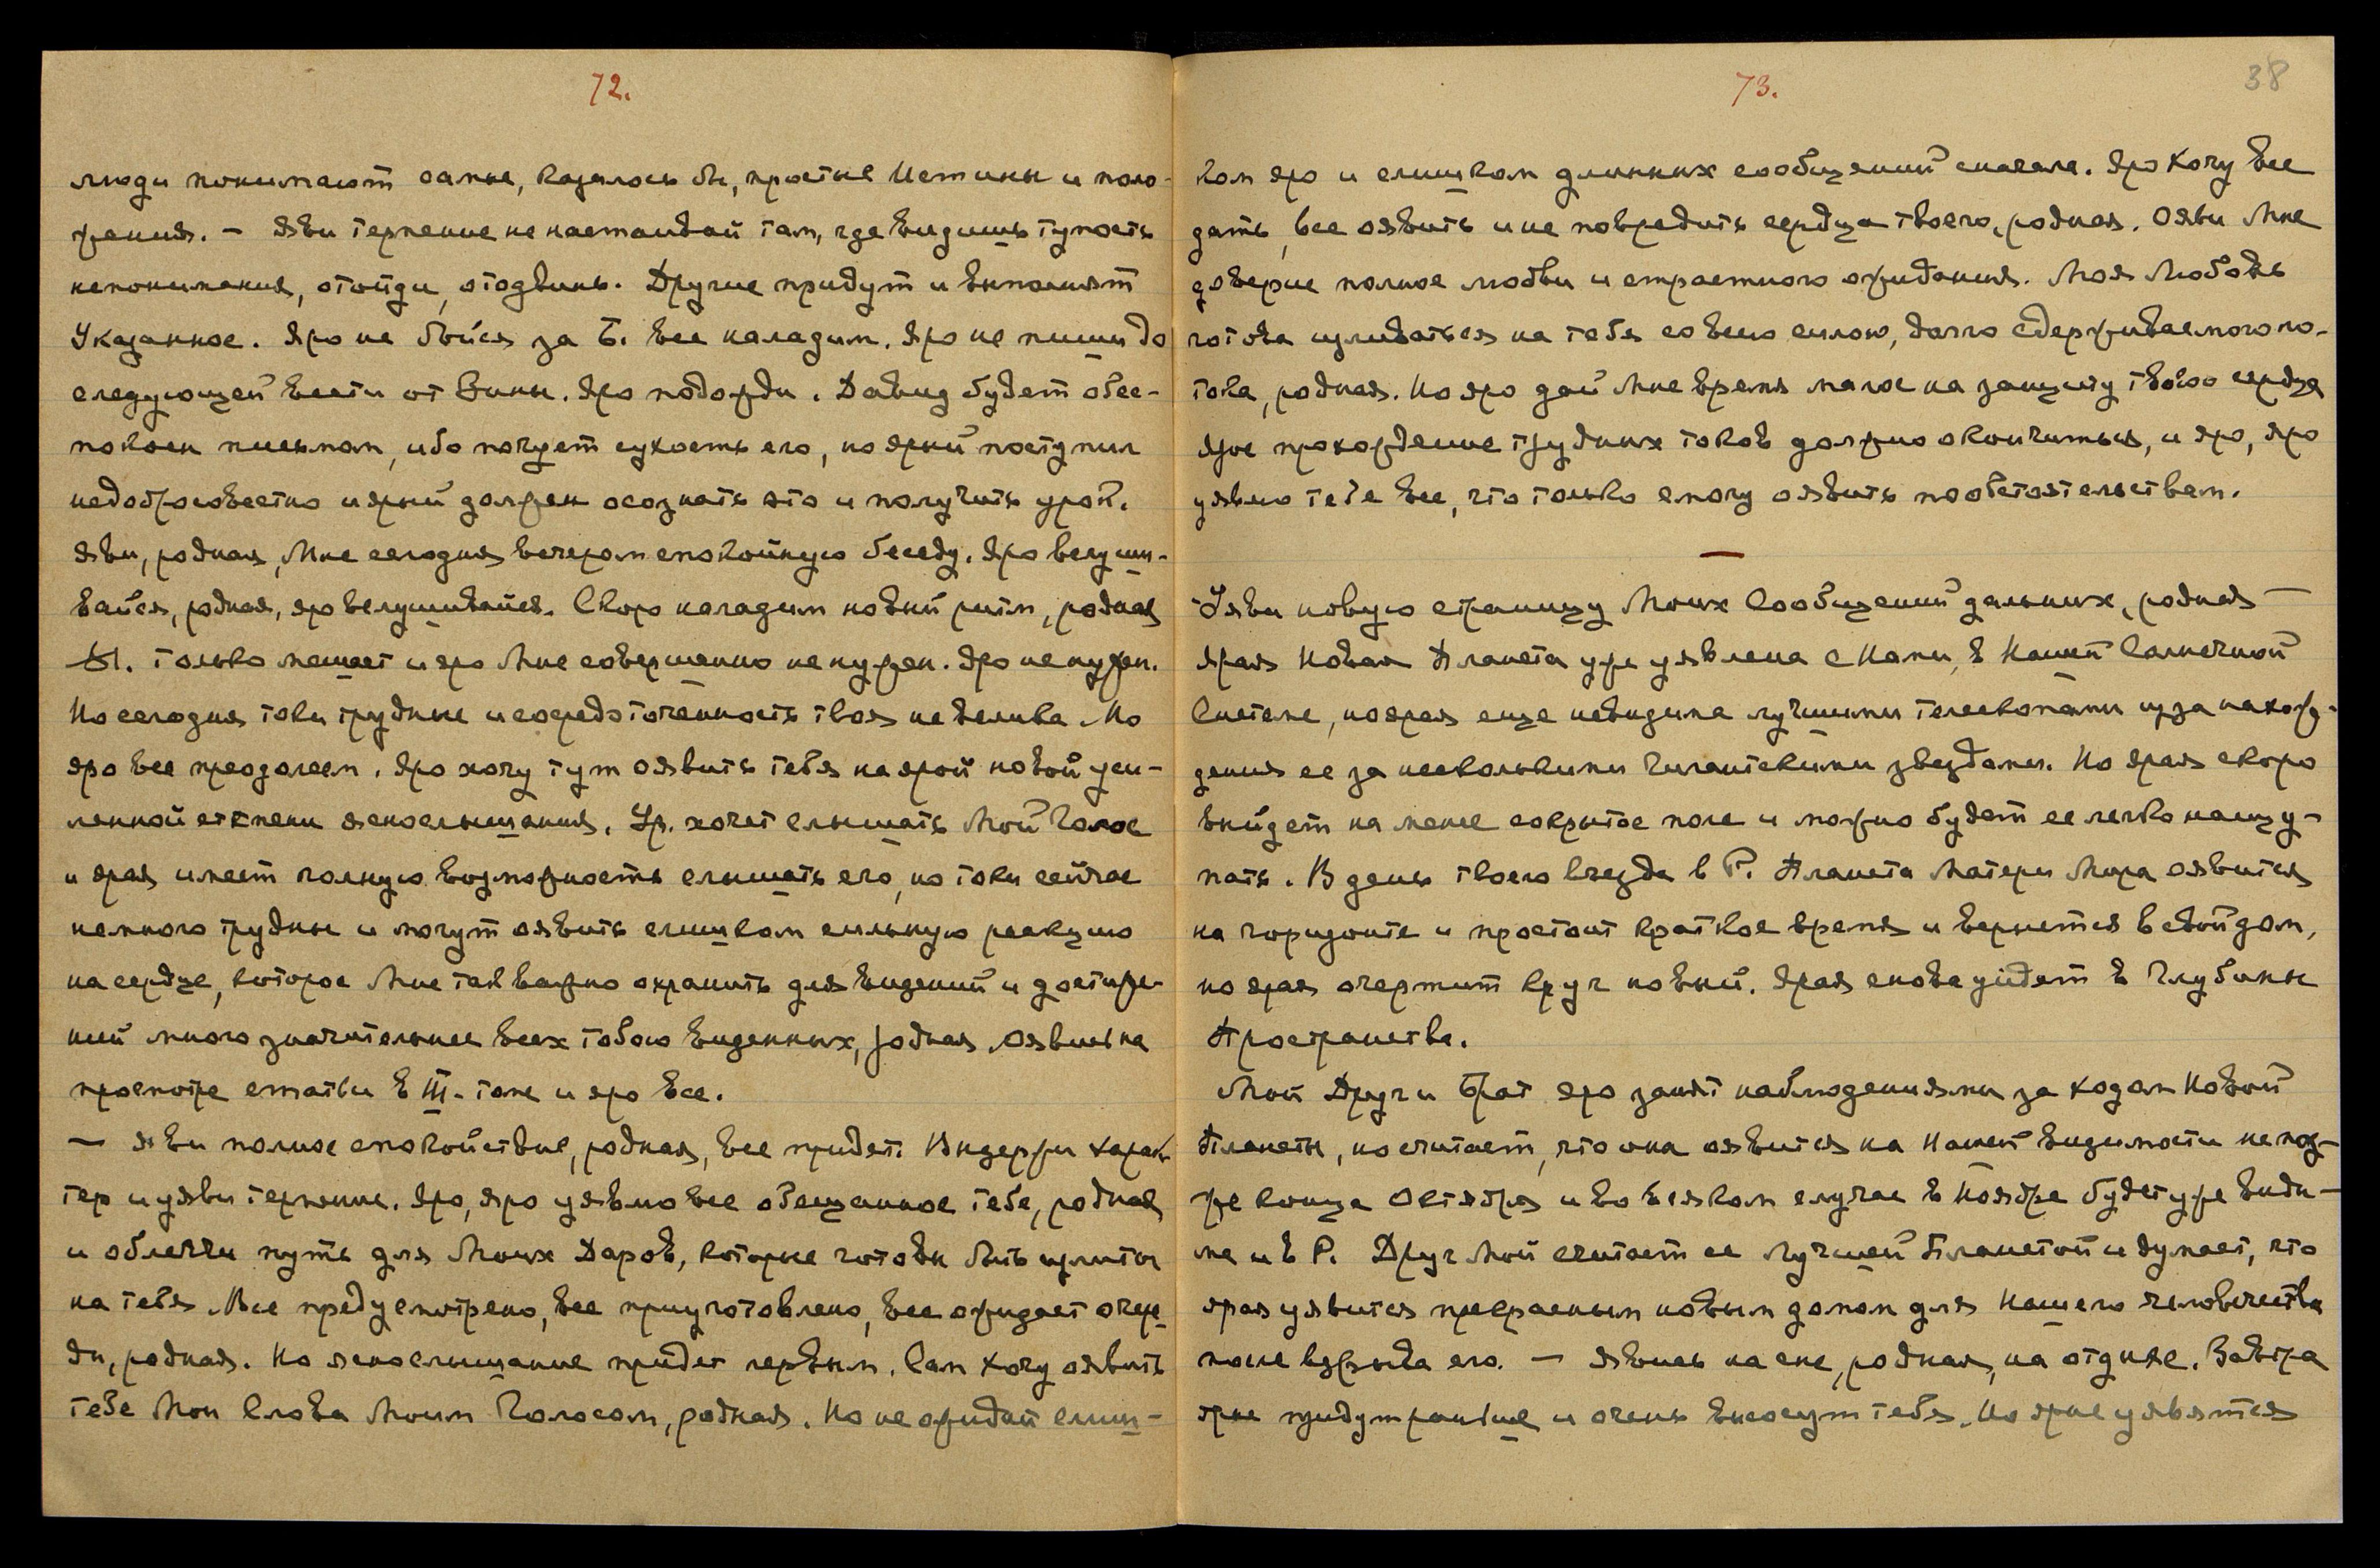 72.
люди понимают самые, казалось бы, простые Истины и поло-
жения. — Яви терпение не настаивай там, где видишь тупость
непонимания, отойди, отодвинь. Другие придут и выполнят
Указанное. Яро не бойся за Б. Все наладим. Яро не пиши до
следующей вести от Зины. Яро подожди. Давид будет обес-
покоен письмом, ибо почует сухость его, но ярый поступил
недобросовестно и ярый должен осознать это и получить урок.
Яви, родная, Мне сегодня вечером спокойную беседу. Яро вслуши-
вайся, родная, яро вслушивайся. Скоро наладим новый ритм, родная
только мешает и яро Мне совершенно не нужен. Яро не нужен.
Но сегодня токи трудные и сосредоточенность твоя не велика. Но
яро все преодолеем. Яро хочу тут оявить тебя на ярой новой уси-
ленной степени яснослышания. Ур. хочет слышать Мой Голос
и ярая имеет полную возможность слышать его, но токи сейчас
немного трудны и могут оявить слишком сильную реакцию
на сердце, которое Мне так важно охранить для видений и достиже-
ний много значительнее всех тобою виденных, родная. Оявись на
просмотре статьи в Ш. томе и яро все.
— Яви полное спокойствие, родная, все придет. Выдержи харак-
тер и уяви терпение. Яро, яро уявлю все обещанное тебе, родная
и облегчи путь для Моих Даров, которые готовы быть излиты
на тебя. Все предусмотрено, все приуготовлено, все ожидает очере-
ди, родная. Но яснослышание придет первым. Сам хочу оявить
тебе Мои Слова Моим Голосом, родная. Но не ожидай слиш-
73.
38
ком яро и слишком длинных сообщений сначала. Яро хочу все
дать, все оявить и не повредить сердца твоего, родная. Ояви Мне
доверие полное любви и страстного ожидания. Моя Любовь
готова изливаться на тебя со всею силою, долго сдерживаемого по-
тока, родная. Но яро дай Мне время малое на защиту твоего сердца
Ярое прохождение трудных токов должно окончиться, и яро, яро
уявлю тебе все, что только смогу оявить по обстоятельствам.
—
Уяви новую страницу Моих Сообщений дальних, родная —
Ярая Новая Планета уже уявлена с Нами, в Нашей Солнечной
Системе, но ярая еще невидима лучшими телескопами из за нахож-
дения ее за несколькими гигантскими звездами. Но ярая скоро
выйдет на менее сокрытое поле и можно будет ее легко нащу-
пать. В день твоего въезда в Р. Планета Матери Мира оявится
на горизонте и простоит краткое время и вернется в свой дом,
но ярая очертит круг новый. Ярая снова уйдет в Глубины
Пространства.
Мой Друг и Брат яро занят наблюдениями за ходом Новой
Планеты, но считает, что она оявится на Нашей видимости не поз-
же конца Октября и во всяком случае в Ноябре будет уже види-
ма и в Р. Друг Мой считает ее лучшей Планетой и думает, что
ярая уявится прекрасным новым домом для Нашего человечества
после взрыва его. — Явись на сне, родная, на отдыхе. Завтра
ярые придут раньше и очень тебя. Но ярые уявятся